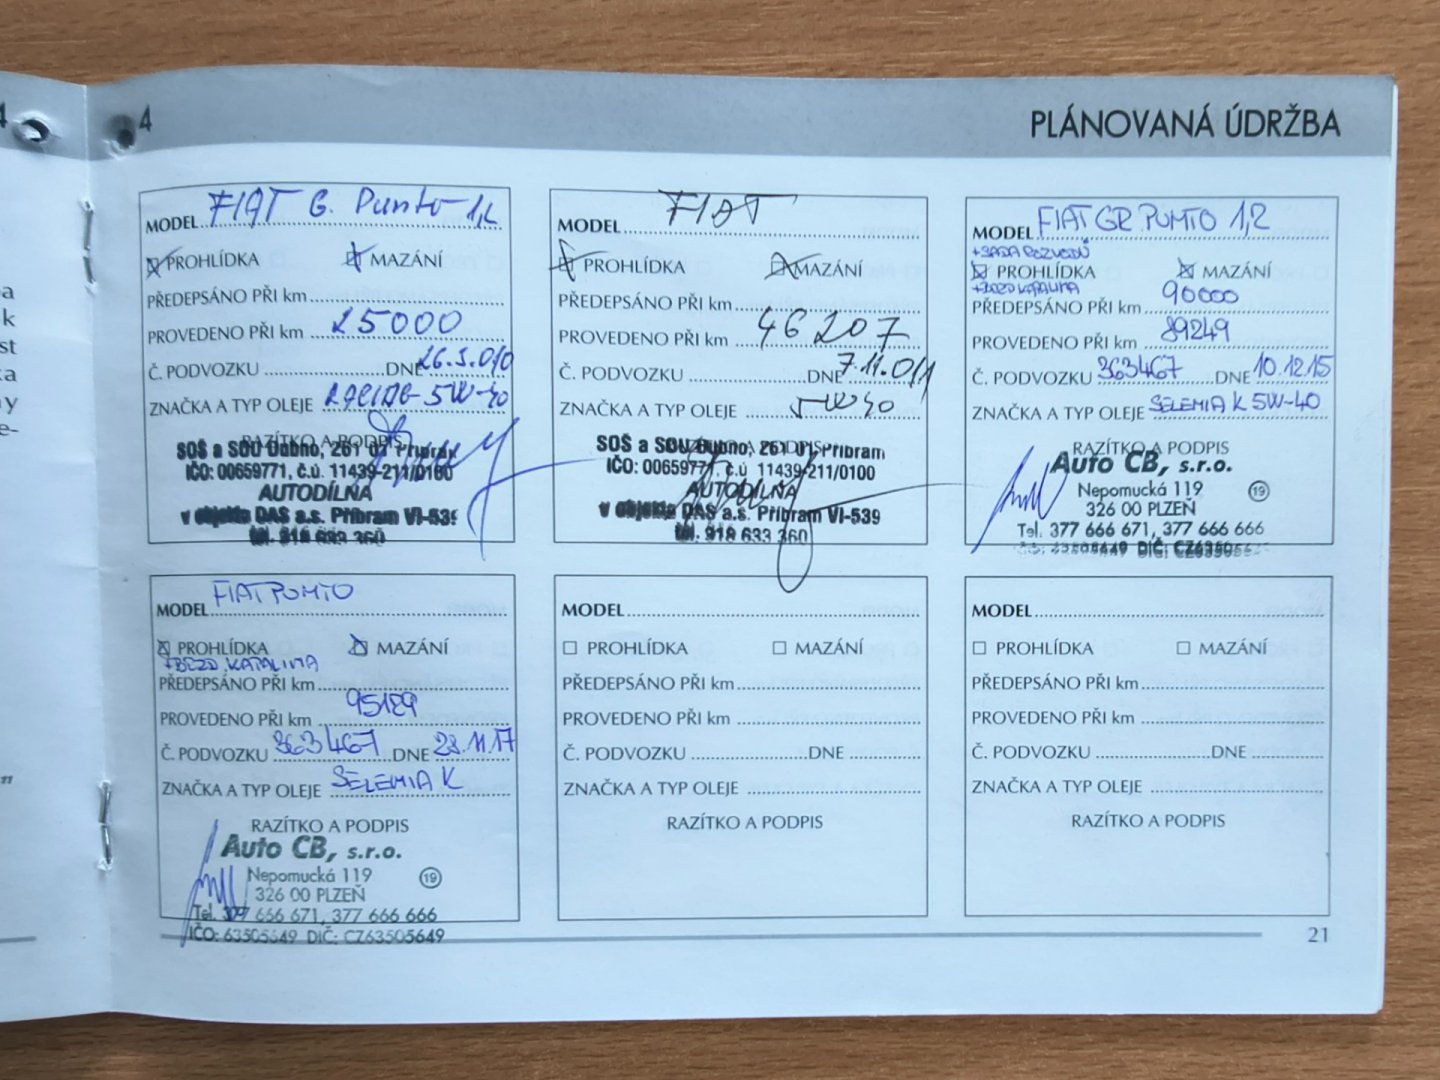 4
4
PLÁNOVANÁ ÚDRŽBA
MODEL FIAT G. Punto 1,2
PROHLÍDKA MAZÁNÍ
PŘEDEPSÁNO PŘI km
PROVEDENO PŘI km 25000
Č. PODVOZKU DNE 26.5.010
ZNAČKA A TYP OLEJE 5W-40
RAZÍTKO A PODPIS
SOŠ a SOU Dubno, 261 01 Příbram
IČO: 00659771, č.ú. 11439-211/0100
AUTODÍLNA
v objektu DAS a.s. Příbram VI-539
tel. 318 633 360
MODEL FIAT
PROHLÍDKA MAZÁNÍ
PŘEDEPSÁNO PŘI km
PROVEDENO PŘI km 46207
Č. PODVOZKU DNE 7.11.011
ZNAČKA A TYP OLEJE 5W40
RAZÍTKO A PODPIS
SOŠ a SOU Dubno, 261 01 Příbram
IČO: 00659771, č.ú. 11439-211/0100
AUTODÍLNA
v objektu DAS a.s. Příbram VI-539
tel. 318 633 360
MODEL FIAT GR. PUNTO 1,2
+ SADA ROZVODŮ
PROHLÍDKA MAZÁNÍ
+ BRZD. KAPALINA
PŘEDEPSÁNO PŘI km 90000
PROVEDENO PŘI km 89249
Č. PODVOZKU 363467 DNE 10.12.15
ZNAČKA A TYP OLEJE SELENIA K 5W-40
RAZÍTKO A PODPIS
Auto CB, s.r.o.
Nepomucká 119 19
326 00 PLZEŇ
Tel. 377 666 671, 377 666 666
IČO: 63505649 DIČ: CZ63505649
MODEL FIAT PUNTO
PROHLÍDKA MAZÁNÍ
+ BRZD. KAPALINA
PŘEDEPSÁNO PŘI km
PROVEDENO PŘI km 95189
Č. PODVOZKU 363467 DNE 28.11.17
ZNAČKA A TYP OLEJE SELENIA K
RAZÍTKO A PODPIS
Auto CB, s.r.o.
Nepomucká 119 19
326 00 PLZEŇ
Tel. 377 666 671, 377 666 666
IČO: 63505649 DIČ: CZ63505649
MODEL
PROHLÍDKA MAZÁNÍ
PŘEDEPSÁNO PŘI km
PROVEDENO PŘI km
Č. PODVOZKU DNE
ZNAČKA A TYP OLEJE
RAZÍTKO A PODPIS
MODEL
PROHLÍDKA MAZÁNÍ
PŘEDEPSÁNO PŘI km
PROVEDENO PŘI km
Č. PODVOZKU DNE
ZNAČKA A TYP OLEJE
RAZÍTKO A PODPIS
21